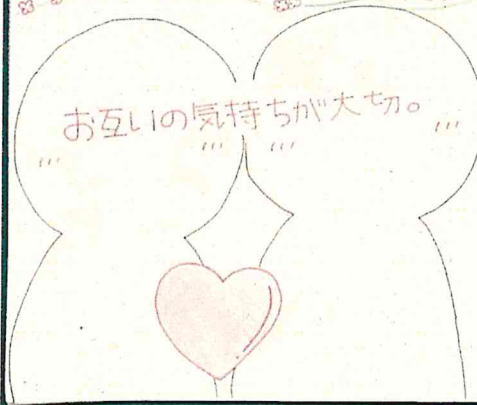 お互いの気持ちが大切。